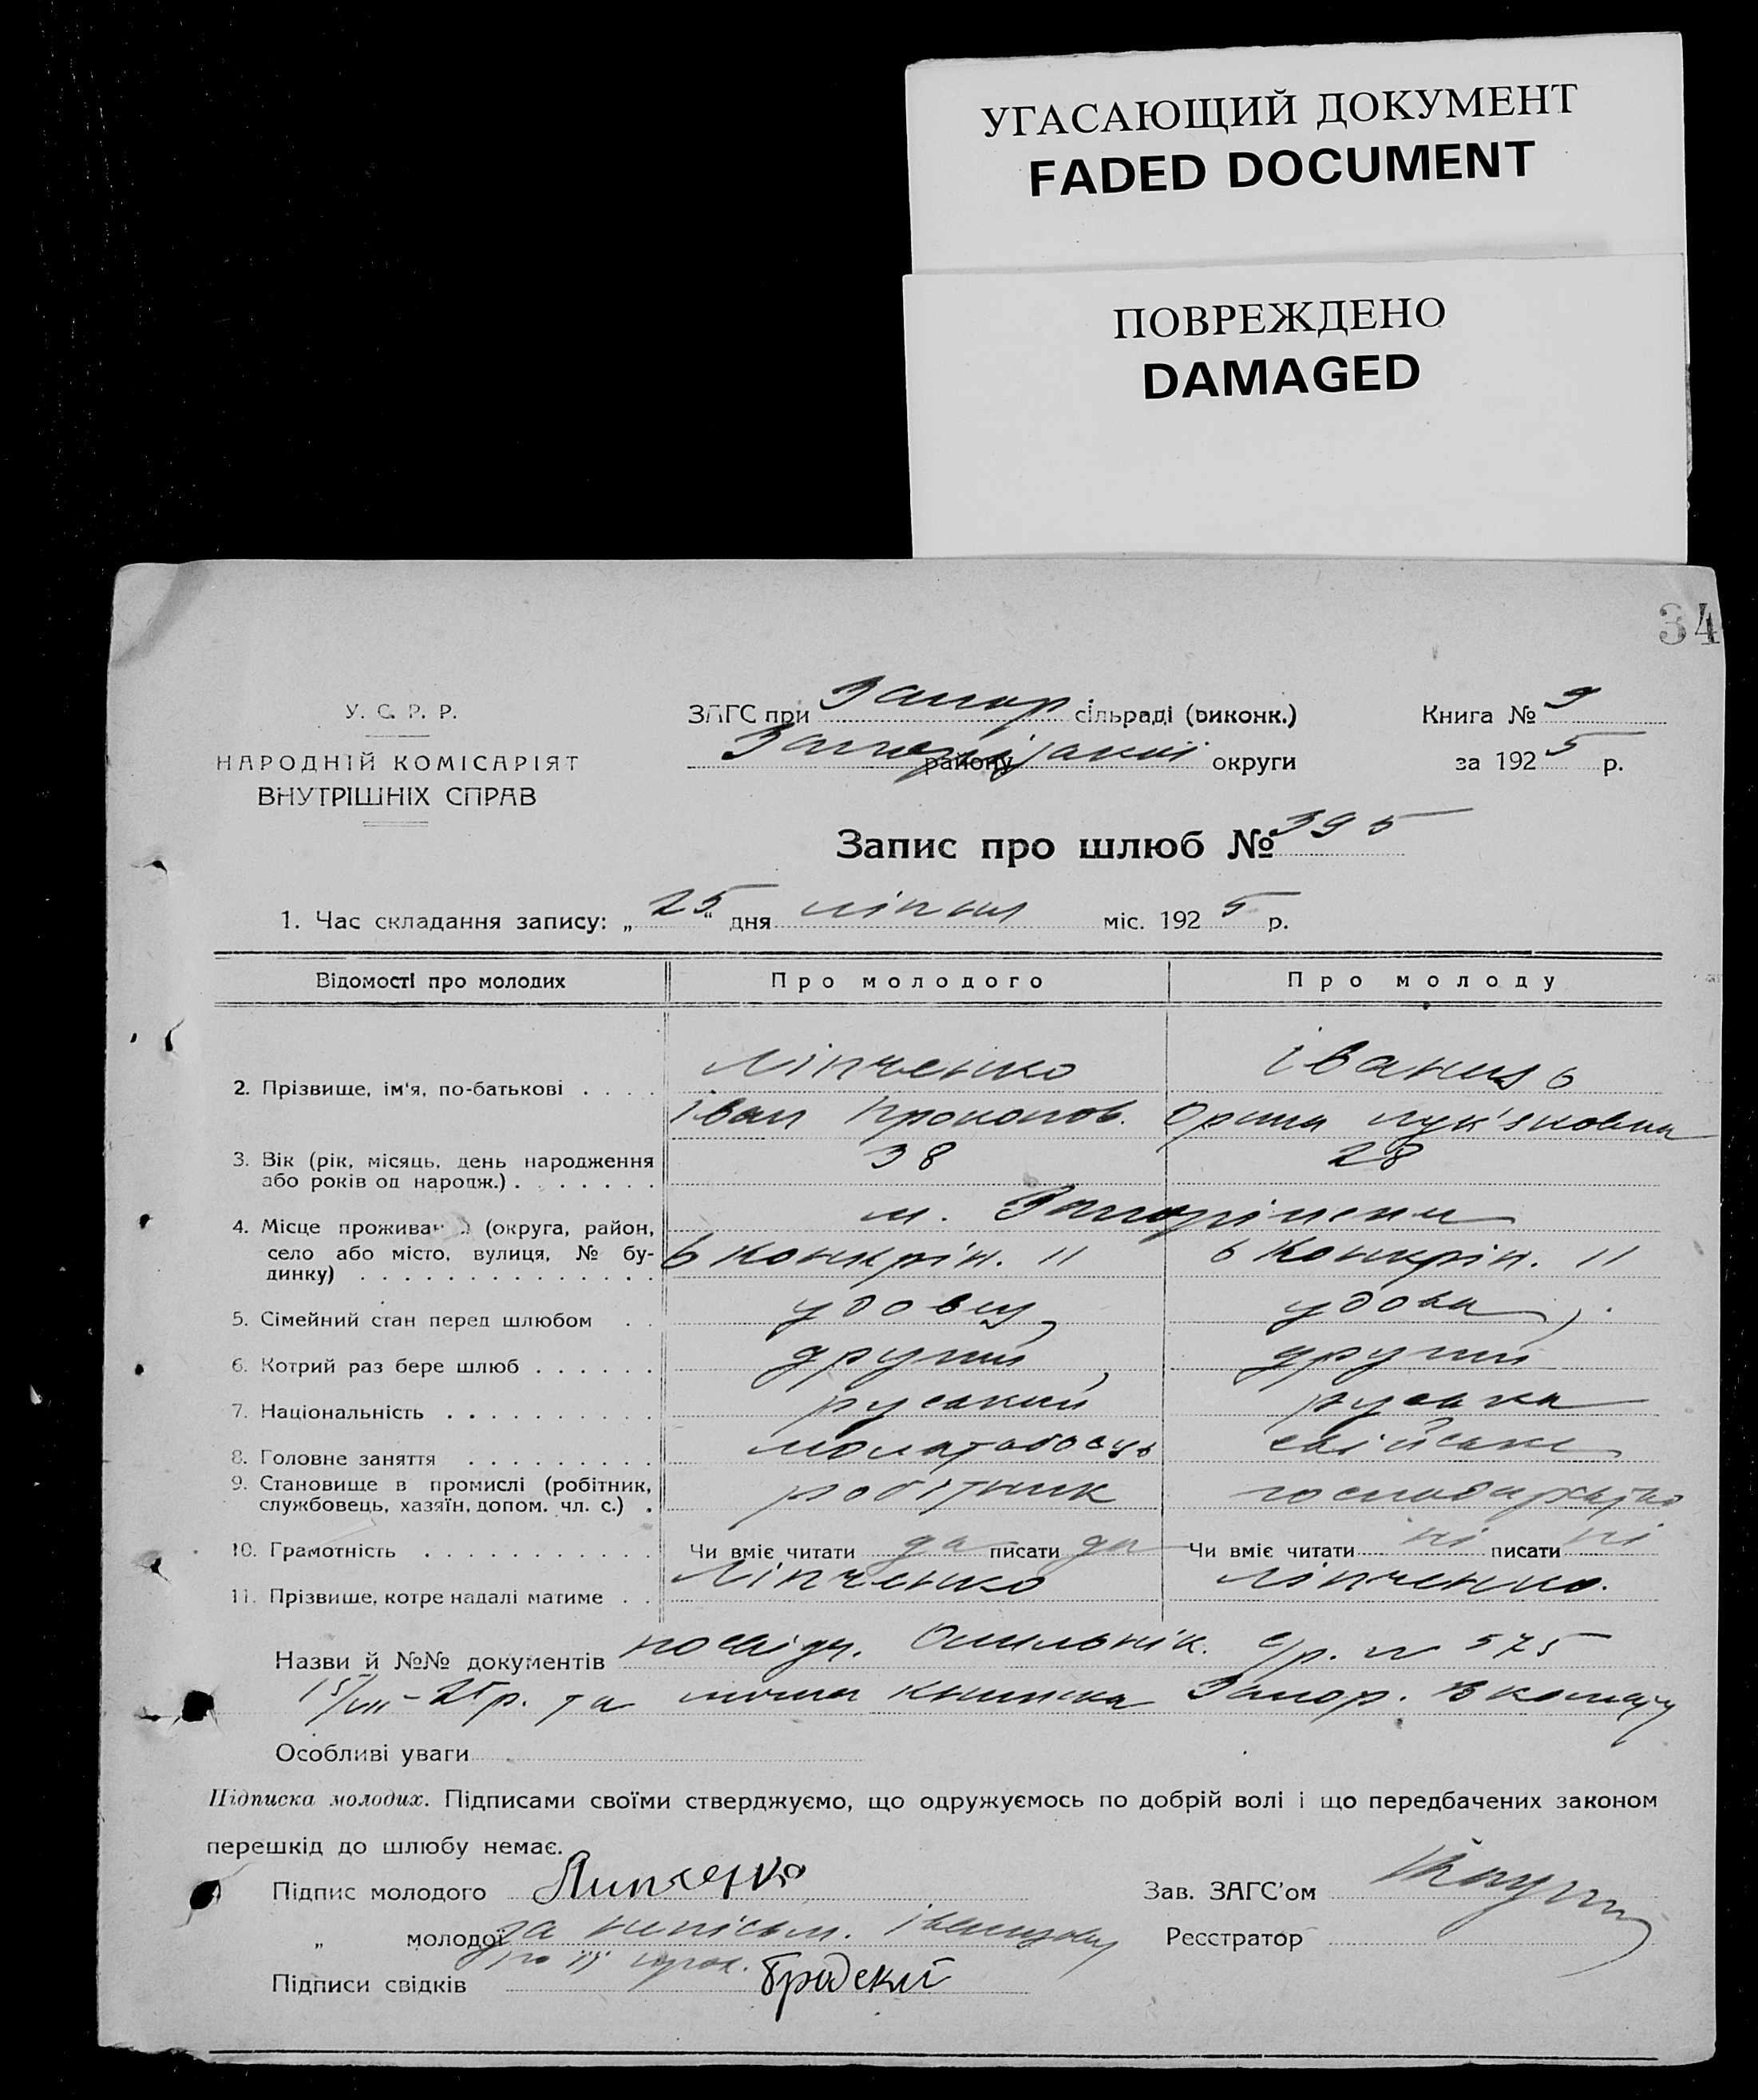 УГАСАЮЩИЙ ДОКУМЕНТ
FADED DOCUMENT
ПОВРЕЖДЕНО
DAMAGED
34
У. С. Р. Р.
НАРОДНІЙ КОМІСАРІЯТ
ВНУТРІШНІХ СПРАВ
ЗАГС при Запор. сільраді (виконк.)
району округи
Книга № 9
за 1925 р.
Запис про шлюб № 395
1. Час складання запису: „25“ дня ліпня міс. 1925 р.
Відомості про молодих Про молодого Про молоду
2. Прізвище, ім'я, по-батькові . . . . Ліпченко
Іван Прокопов. Орина Лук'яновна
3. Вік (рік, місяць, день народження або років од народж.) . . . . . . . 38 28
4. Місце проживан (округа, район, село або місто, вулиця, № будинку) . . . . . . . . . . . . . . м.
11 11
5. Сімейний стан перед шлюбом . . удовец удова
6. Котрий раз бере шлюб . . . . . . другий другий
7. Національність . . . . . . . . . . руський руська
8. Головне заняття . . . . . . . . .
9. Становище в промислі (робітник, службовець, хазяїн, допом. чл. с.) . робітник
10. Грамотність . . . . . . . . . . . Чи вміє читати да писати да Чи вміє читати ні писати ні
11. Прізвище, котре надалі матиме . . Ліпченко Ліпченко.
Назви й №№ документів посвідч. с/р. № 575
15/VII-25 р. та книжка Запор.
Особливі уваги
Підписка молодих. Підписами своїми стверджуємо, що одружуємось по добрій волі і що передбачених законом
перешкід до шлюбу немає.
Підпис молодого Липченко Зав. ЗАГС'ом
„ молодої за непісьм. Реєстратор
Підписи свідків Бродский